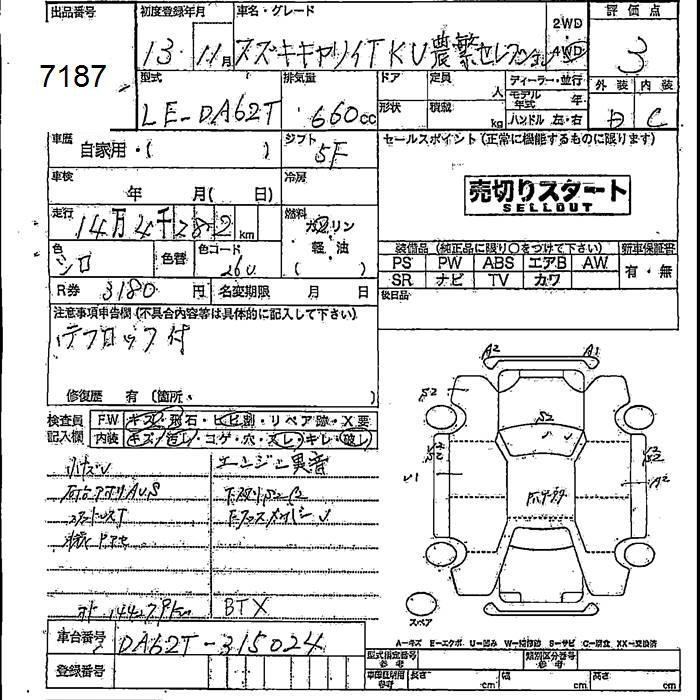 出品番号 初度登録年月 車名・グレード 評価点
7187
13 . 11 月 スズキキャリイT KU 農繁セレクション 2WD 4WD 3
型式 排気量 ドア 定員 人 ディーラー・並行 外装 内装
LE-DA62T 660cc 形状 積載 kg モデル年式 年 ハンドル 左・右 D C
車歴 自家用・( ) シフト 5F セールスポイント(正常に機能するものに限ります)
車検 年 月( 日) 冷房
売切りスタート
SELLOUT
走行 14万4千282 km 燃料 ガソリン 軽・油 ( )
色 シロ 色替 色コード 26U
装備品(純正品に限り〇をつけて下さい) 新車保証書
PS PW ABS エアB AW 有・無
SR ナビ TV カワ
R券 3180 円 名変期限 月 日 後日品
注意事項申告欄(不具合内容等は具体的に記入して下さい)
デフロック付
修復歴 有(箇所、 )
検査員 記入欄
FW キズ・飛石・ヒビ割・リペア跡・X要
内装 キズ・汚レ・コゲ・穴・スレ・キレ・破レ
エンジン異音
BTX
A2 A1
S2
S2
A2
スペア
A-キズ E-エクボ U-凹み W-補修跡 S-サビ C-腐食 XX-交換済
車台番号 DA62T-315024
登録番号
型式指定番号 参考 類別区分番号 参考
長さ cm 幅 cm 高さ cm